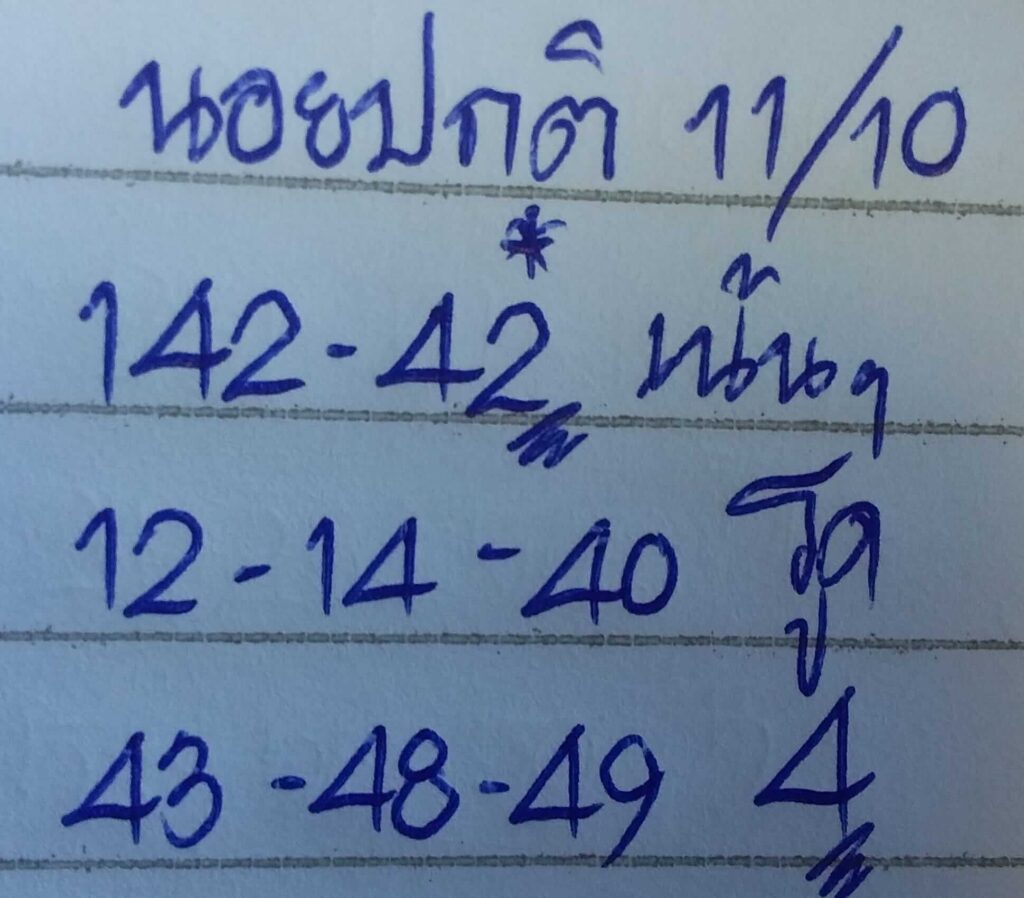 นอยปกติ 11/10
*
142-42 เน้นๆ
12-14-40 รูด
43-48-49 4